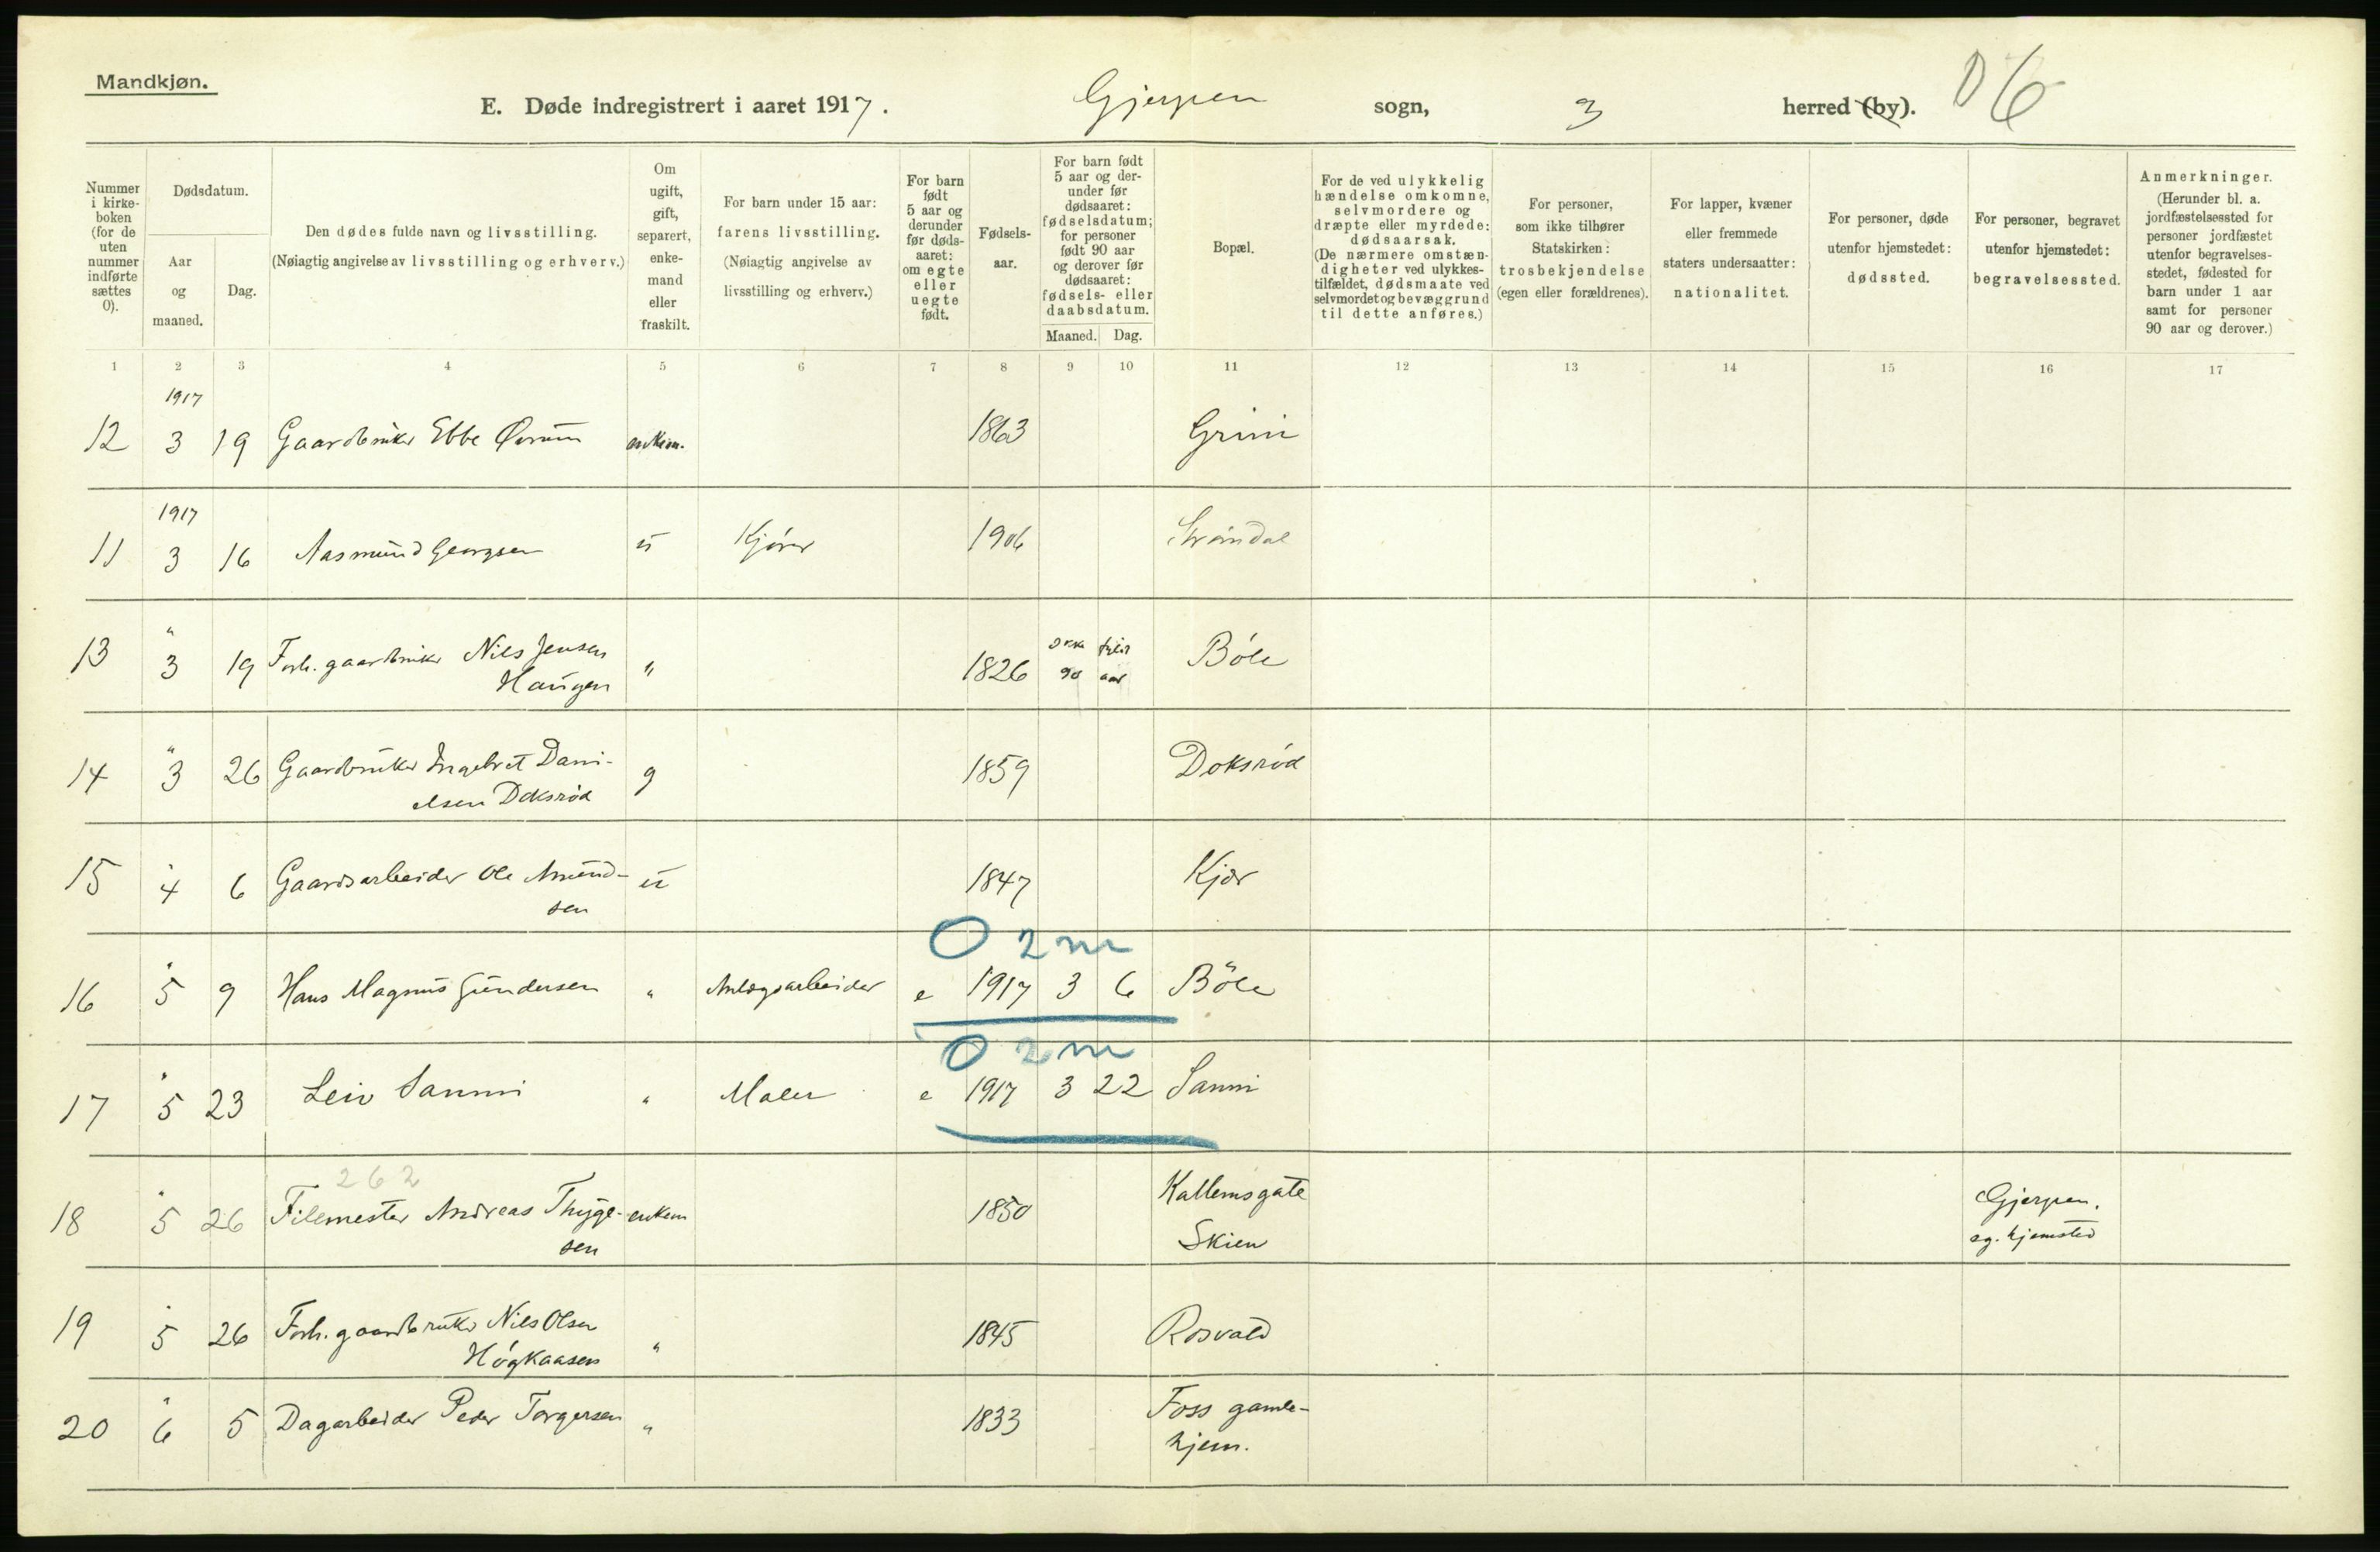 Mandkjøn.
E. Døde indregistrert i aaret 1917. Gjerpen sogn, 3 herred (by). D 6
Nummer i kirkeboken (for de uten nummer indførte sættes 0).
Dødsdatum.
Aar og maaned.
Dag.
Den dødes fulde navn og livsstilling.
(Nøiagtig angivelse av livsstilling og erhverv.)
Om ugift, gift, separert, enkemand eller fraskilt.
For barn under 15 aar:
farens livsstilling.
(Nøiagtig angivelse av
livsstilling og erhverv.)
For barn født 5 aar og derunder før dødsaaret: om egte eller uegte født.
Fødselsaar.
For barn født 5 aar og derunder før dødsaaret: fødselsdatum; for personer født 90 aar og derover før dødsaaret: fødsels- eller daabsdatum.
Maaned. Dag.
Bopæl.
For de ved ulykkelig hændelse omkomne, selvmordere og dræpte eller myrdede: dødsaarsak.
(De nærmere omstændigheter ved ulykkestilfældet, dødsmaate ved selvmordet og bevæggrund til dette anføres.)
For personer,
som ikke tilhører
Statskirken:
trosbekjendelse
(egen eller forældrenes).
For lapper, kvæner
eller fremmede
staters undersaatter:
nationalitet.
For personer, døde
utenfor hjemstedet:
dødssted.
For personer, begravet
utenfor hjemstedet:
begravelsessted.
Anmerkninger.
(Herunder bl. a. jordfæstelsessted for personer jordfæstet utenfor begravelsesstedet, fødested for barn under 1 aar samt for personer 90 aar og derover.)
1 2 3 4 5 6 7 8 9 10 11 12 13 14 15 16 17
1917
12 3 19 Gaardbruker Ebbe Ørum enkem. 1863 Grini
1917
11 3 16 Aasmund Georgsen u Kjører 1906 Strømdal
"
13 3 19 Forh. gaardbruker Nils Jensen " 1826 Ikke fyldt Bøle
Haugen 90 aar
"
14 3 26 Gaardbruker Ingebret Dani- g 1859 Doksrød
elsen Doksrød
"
15 4 6 Gaardsarbeider Ole Amund- u 1847 Kjær
sen
0 2 m
"
16 5 9 Hans Magnus Gundersen " Anlægsarbeider e 1917 3 6 Bøle
0 2 m
"
17 5 23 Leiv Sanni " Maler e 1917 3 22 Sanni
262
"
18 5 26 Filemester Andreas Thyge- enkem 1850 Kallemsgate Gjerpen.
sen Skien eg. hjemsted
"
19 5 26 Forh. gaardbruker Nils Olsen " 1845 Rosvald
Høgkaasen
"
20 6 5 Dagarbeider Peder Torgersen " 1833 Foss gamle-
hjem.